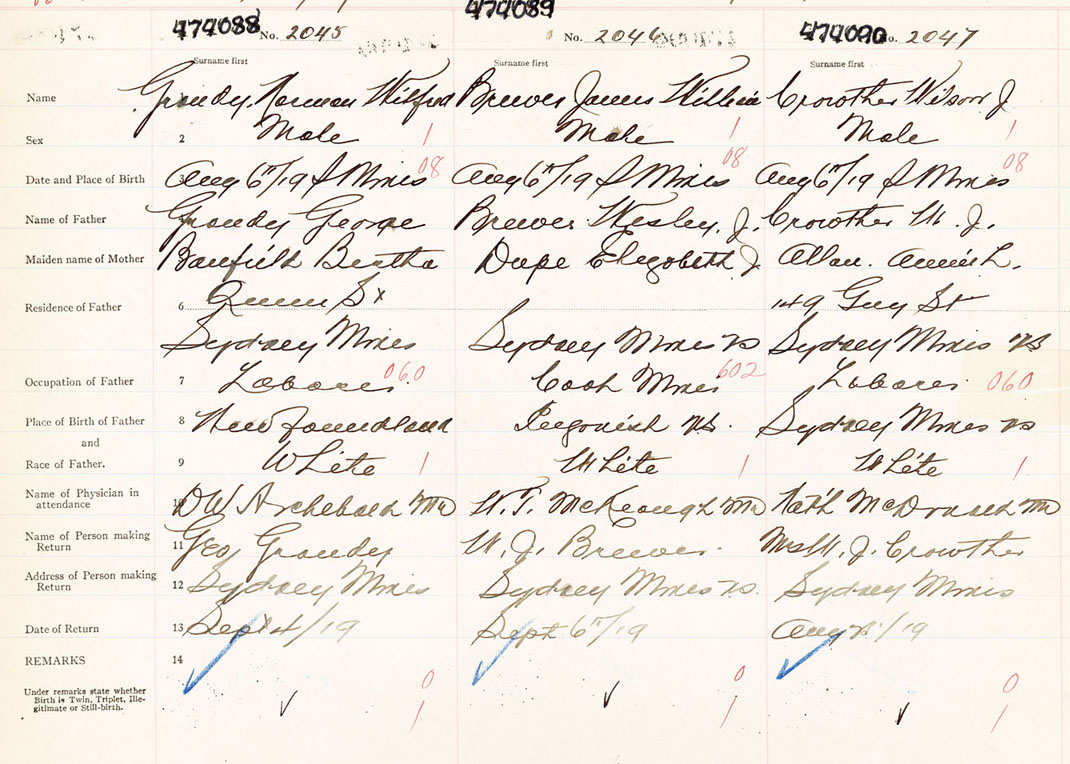 474088 No. 2045 474089 No. 2046 474090 No. 2047
Surname first Surname first Surname first
Name Grandy, Norman Wilfred Brewer James William Crowther Wilson J
Sex 2 Male 1 Male 1 Male 1
Date and Place of Birth 3 Aug 6th/19 S Mines 08 Aug 6th/19 S Mines 08 Aug 6th/19 S Mines 08
Name of Father Grandy George Brewer Wesley. J. Crowther W. J.
Maiden name of Mother Banfield Bertha Dupe Elizabeth J Allan. Annie L.
Residence of Father 6 Queen St 149 Guy St
Sydney Mines Sydney Mines NS Sydney Mines NS
Occupation of Father 7 Laborer 060 Coal Miner 602 Laborer 060
Place of Birth of Father 8 Newfoundland Ingonish NS. Sydney Mines NS
and
Race of Father. 9 White 1 White 1 White 1
Name of Physician in
attendance 10 DW Archebald MD W. T. McKeough MD Nath McDonald MD
Name of Person making
Return 11 Geo Grandy W. J. Brewer. Mrs W. J. Crowther
Address of Person making
Return 12 Sydney Mines Sydney Mines NS. Sydney Mines
Date of Return 13 Sept 4/19 Sept 6th/19 Aug /19
REMARKS 14
Under remarks state whether 0 0 0
Birth is Twin, Triplet, Ille-
gitimate or Still-birth. 1 1 1